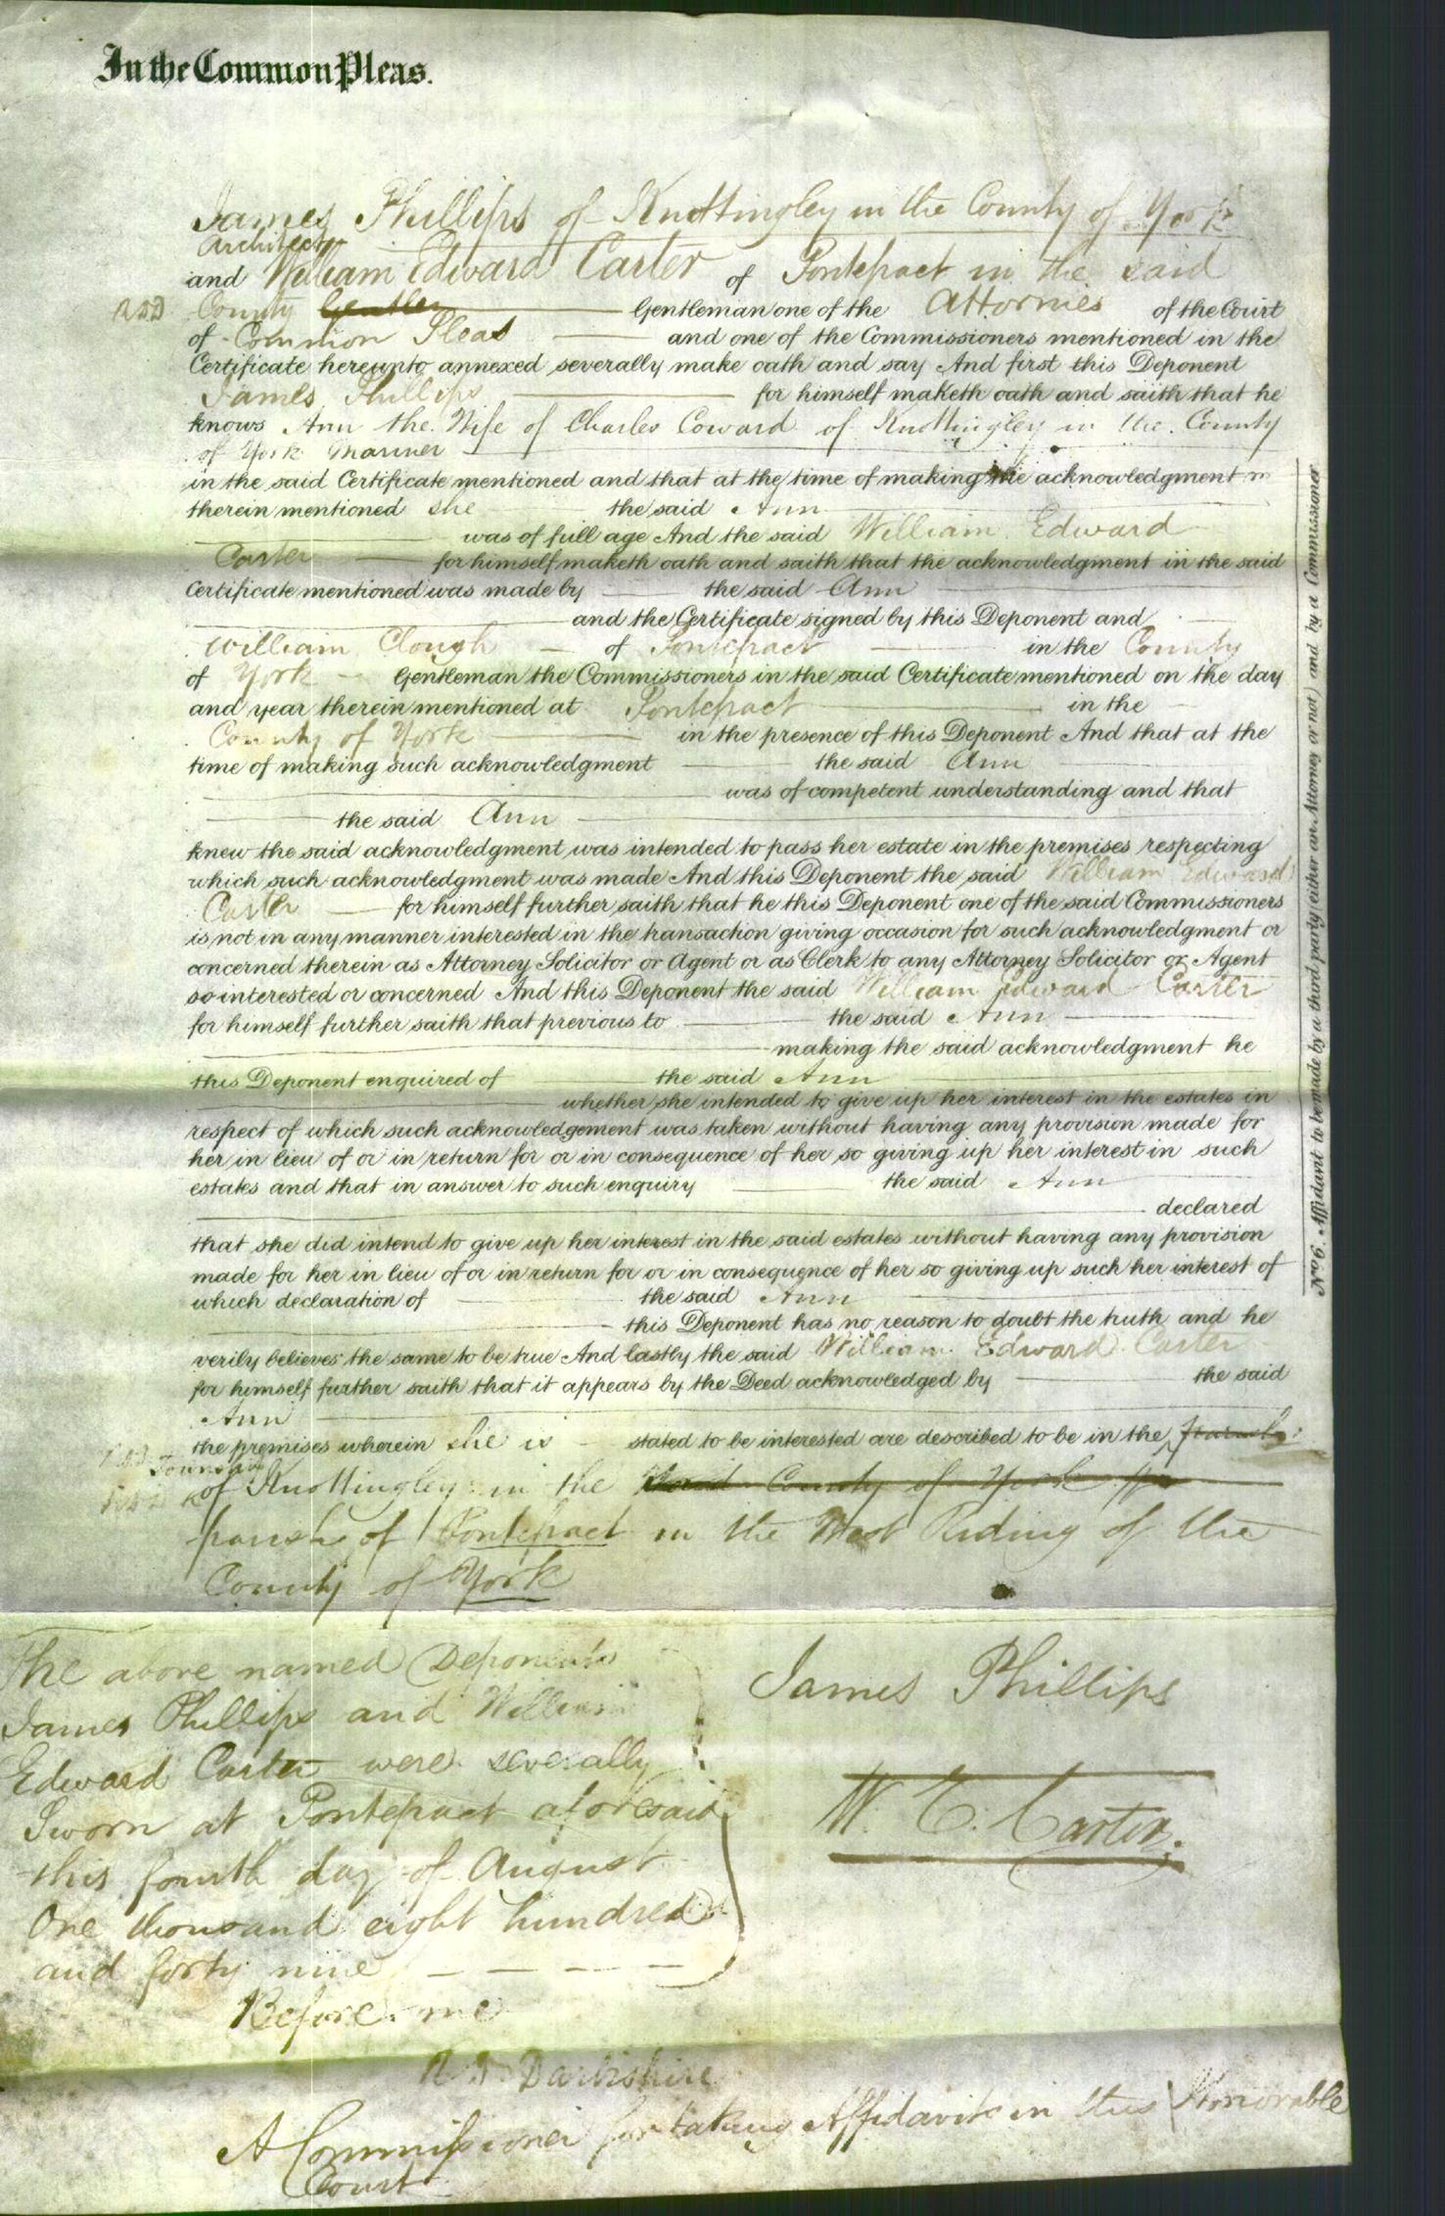 In the Common Pleas.
James Phillips of Knottingley in the County of York
Architect
and William Edward Carter of Pontefract in the said
County Gentleman one of the Attornies of the Court
of Common Pleas and one of the Commissioners mentioned in the
Certificate hereunto annexed severally make oath and say And first this Deponent
James Phillips for himself maketh oath and saith that he
knows Ann the Wife of Charles Coward of Knottingley in the County
of York Mariner
in the said Certificate mentioned and that at the time of making the acknowledgment
therein mentioned she the said Ann
was of full age And the said William Edward
Carter for himself maketh oath and saith that the acknowledgment in the said
Certificate mentioned was made by the said Ann
and the Certificate signed by this Deponent and
William Clough of Pontefract in the County
of York Gentleman the Commissioners in the said Certificate mentioned on the day
and year therein mentioned at Pontefract in the
County of York in the presence of this Deponent And that at the
time of making such acknowledgment the said Ann
was of competent understanding and that
the said Ann
knew the said acknowledgment was intended to pass her estate in the premises respecting
which such acknowledgment was made And this Deponent the said William Edward
Carter for himself further saith that he this Deponent one of the said Commissioners
is not in any manner interested in the transaction giving occasion for such acknowledgment or
concerned therein as Attorney Solicitor or Agent or as Clerk to any Attorney Solicitor or Agent
so interested or concerned And this Deponent the said William Edward Carter
for himself further saith that previous to the said Ann
making the said acknowledgment he
this Deponent enquired of the said Ann
whether she intended to give up her interest in the estates in
respect of which such acknowledgement was taken without having any provision made for
her in lieu of or in return for or in consequence of her so giving up her interest in such
estates and that in answer to such enquiry the said Ann
declared
that she did intend to give up her interest in the said estates without having any provision
made for her in lieu of or in return for or in consequence of her so giving up such her interest of
which declaration of the said Ann
this Deponent has no reason to doubt the truth and he
verily believes the same to be true And lastly the said William Edward Carter
for himself further saith that it appears by the Deed acknowledged by the said
Ann
the premises wherein she is stated to be interested are described to be in the
Township
of Knottingley in the said County of York
parish of Pontefract in the West Riding of the
County of York
The above named Deponents
James Phillips and William
Edward Carter were severally
Sworn at Pontefract aforesaid
this fourth day of August
One thousand eight hundred
and forty nine
Before me
Darbishire
A Commissioner for taking Affidavits in this Honorable
Court
James Phillips
W. E. Carter.
No. 6. Affidavit to be made by a third party (either an Attorney or not) and by a Commissioner